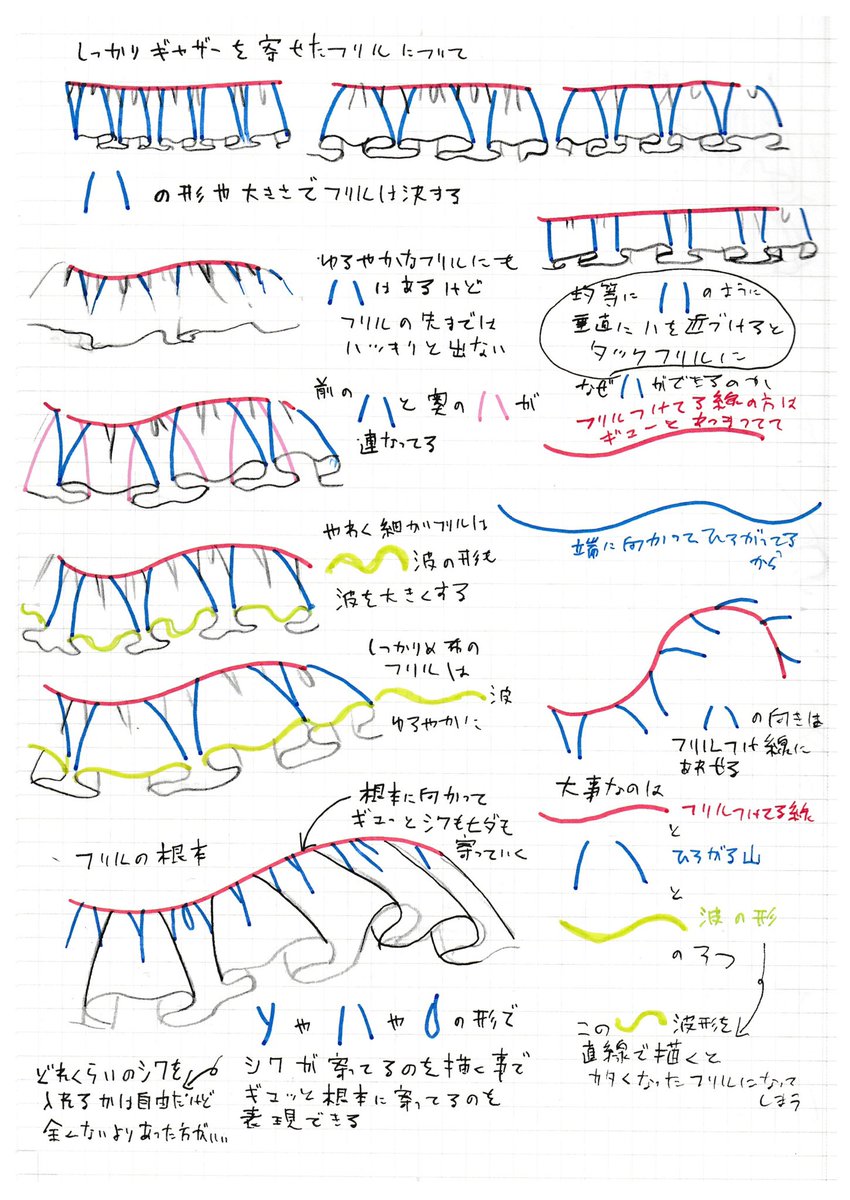 しっかりギャザーを寄せたフリルについて
ハの形や大きさでフリルは決する
ゆるやかなフリルにも
ハはあるけど
フリルの先までは
ハッキリと出ない
均等にハのように
垂直にハを近づけると
タックフリルに
前のハと奥のハが
連なってる
なぜハができるのか
フリルつけてる線の方は
ギューとあつまってて
端に向かってひろがってる
から
やわく細かいフリルは
波の形も
波を大きくする
しっかりめ布の
フリルは
波
ゆるやかに
ハの向きは
フリルつけ線に
あわせる
大事なのは
フリルつけてる線
と
ひろがる山
と
波の形
の3つ
この波形を
直線で描くと
カタくなったフリルになって
しまう
フリルの根本
根本に向かって
ギュっとシワもヒダも
寄っていく
yやハや0の形で
シワが寄ってるのを描く事で
ギュッと根本に寄ってるのを
表現できる
どれくらいのシワを
入れるかは自由だけど
全くないよりあった方がいい